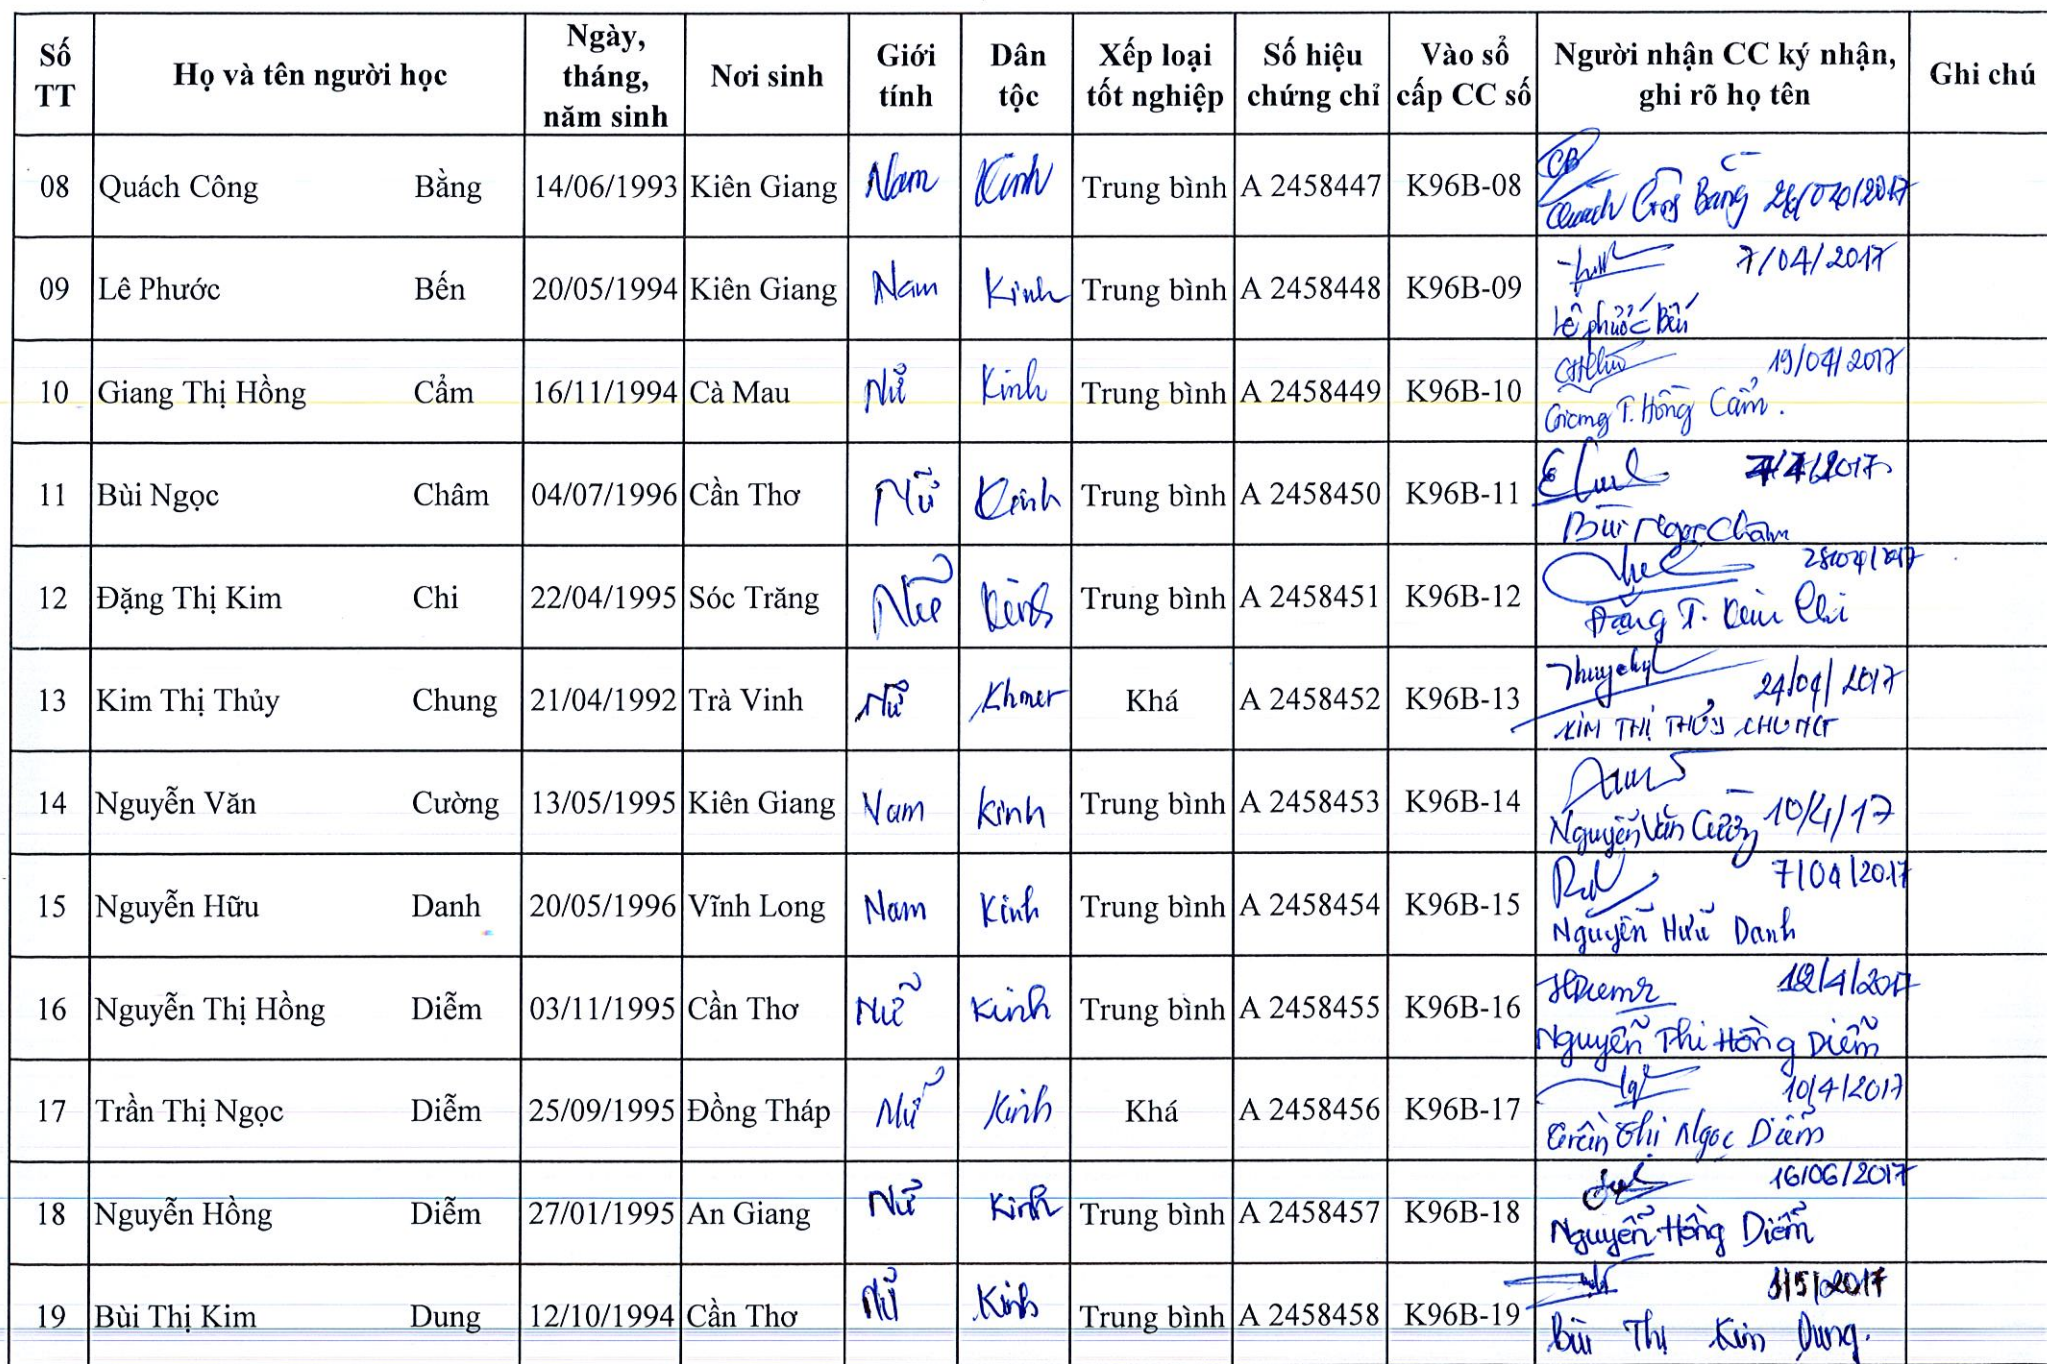 Số TT Họ và tên người học Ngày, tháng, năm sinh Nơi sinh Giới tính Dân tộc Xếp loại tốt nghiệp Số hiệu chứng chỉ Vào sổ cấp CC số Người nhận CC ký nhận, ghi rõ họ tên Ghi chú
08 Quách Công Bằng 14/06/1993 Kiên Giang Nam Kinh Trung bình A 2458447 K96B-08
Quách Công Bằng
09 Lê Phước Bến 20/05/1994 Kiên Giang Nam Kinh Trung bình A 2458448 K96B-09 7/04/2017
Lê Phước Bến
10 Giang Thị Hồng Cẩm 16/11/1994 Cà Mau Nữ Kinh Trung bình A 2458449 K96B-10 19/04/2017
Giang T. Hồng Cẩm.
11 Bùi Ngọc Châm 04/07/1996 Cần Thơ Nữ Kinh Trung bình A 2458450 K96B-11
Bùi Ngọc Châm
12 Đặng Thị Kim Chi 22/04/1995 Sóc Trăng Nữ Kinh Trung bình A 2458451 K96B-12
Đặng T. Kim Chi
13 Kim Thị Thủy Chung 21/04/1992 Trà Vinh Nữ Khmer Khá A 2458452 K96B-13 24/04/2017
KIM THỊ THỦY CHUNG
14 Nguyễn Văn Cường 13/05/1995 Kiên Giang Nam Kinh Trung bình A 2458453 K96B-14
Nguyễn Văn Cường 10/4/17
15 Nguyễn Hữu Danh 20/05/1996 Vĩnh Long Nam Kinh Trung bình A 2458454 K96B-15 7/04/2017
Nguyễn Hữu Danh
16 Nguyễn Thị Hồng Diễm 03/11/1995 Cần Thơ Nữ Kinh Trung bình A 2458455 K96B-16
Nguyễn Thị Hồng Diễm
17 Trần Thị Ngọc Diễm 25/09/1995 Đồng Tháp Nữ Kinh Khá A 2458456 K96B-17 10/4/2017
Trần Thị Ngọc Diễm
18 Nguyễn Hồng Diễm 27/01/1995 An Giang Nữ Kinh Trung bình A 2458457 K96B-18 16/06/2017
Nguyễn Hồng Diễm
19 Bùi Thị Kim Dung 12/10/1994 Cần Thơ Nữ Kinh Trung bình A 2458458 K96B-19
Bùi Thị Kim Dung.